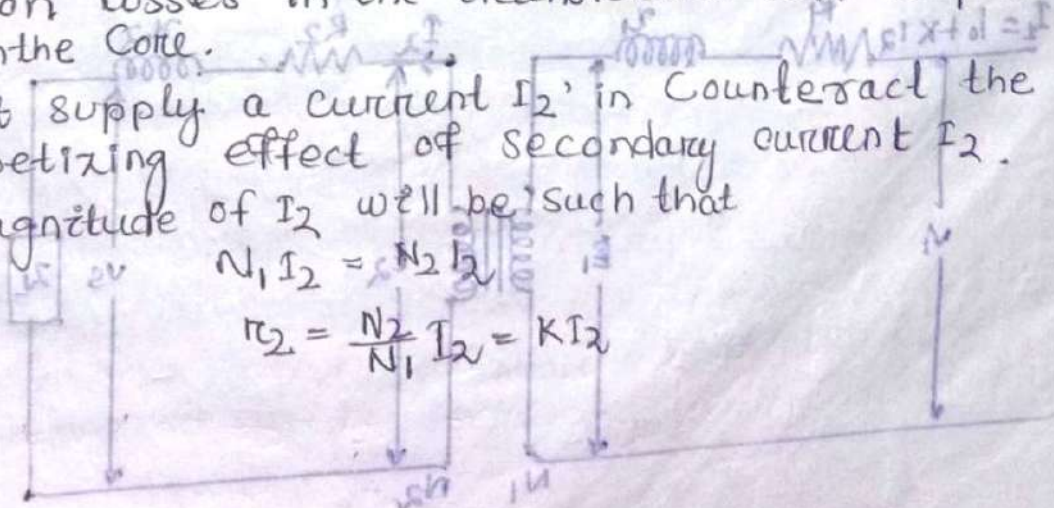 on losses in the
the Core.
supply a current I2' in Counteract the
etizing effect of secondary current I2.
gnitude of I2 will be such that
N1 I2 = N2 I2
r2 = N2/N1 I2 = KI2